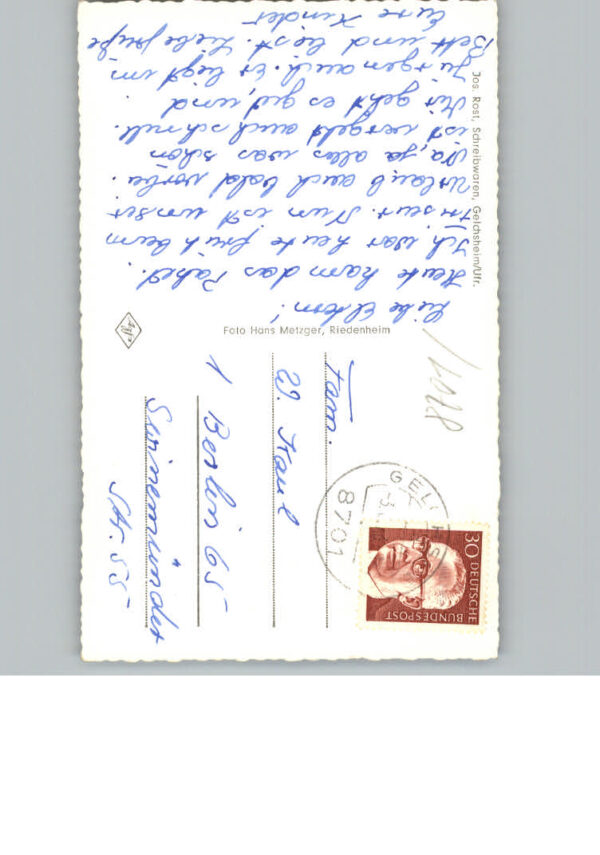 Liebe Eltern!
Heute kam das Paket.
Ich war heute früh beim
Friseur. Nun ist unser
Urlaub auch bald vorbei.
Na, ja alles was schön
ist vergeht auch schnell.
Mir geht es gut, und
Jürgen auch. Er liegt im
Bett und liest. Liebe Grüße
Eure Kinder
Foto Hans Metzger, Riedenheim
Jos. Rost, Schreibwaren, Gelchsheim/Ufr.
Fam.
W.
1 Berlin 65
Swinemünder
Str. 55
8701
30 DEUTSCHE
BUNDESPOST